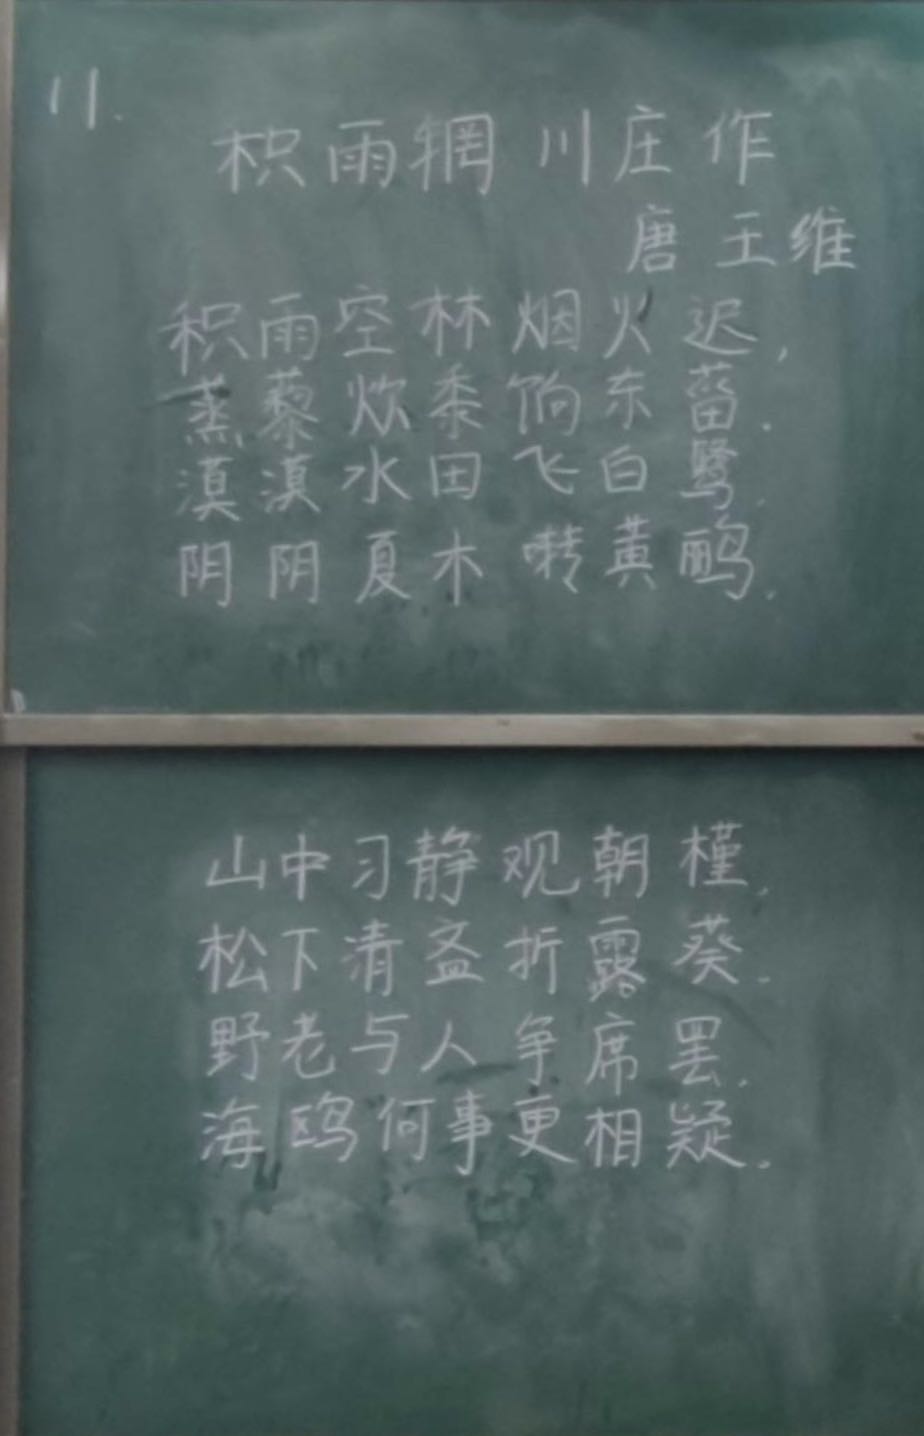 11.
枳雨辋川庄作
唐 王维
积雨空林烟火迟,
蒸藜炊黍饷东菑.
漠漠水田飞白鹭.
阴阴夏木啭黄鹂.
山中习静观朝槿.
松下清斋折露葵.
野老与人争席罢.
海鸥何事更相疑.